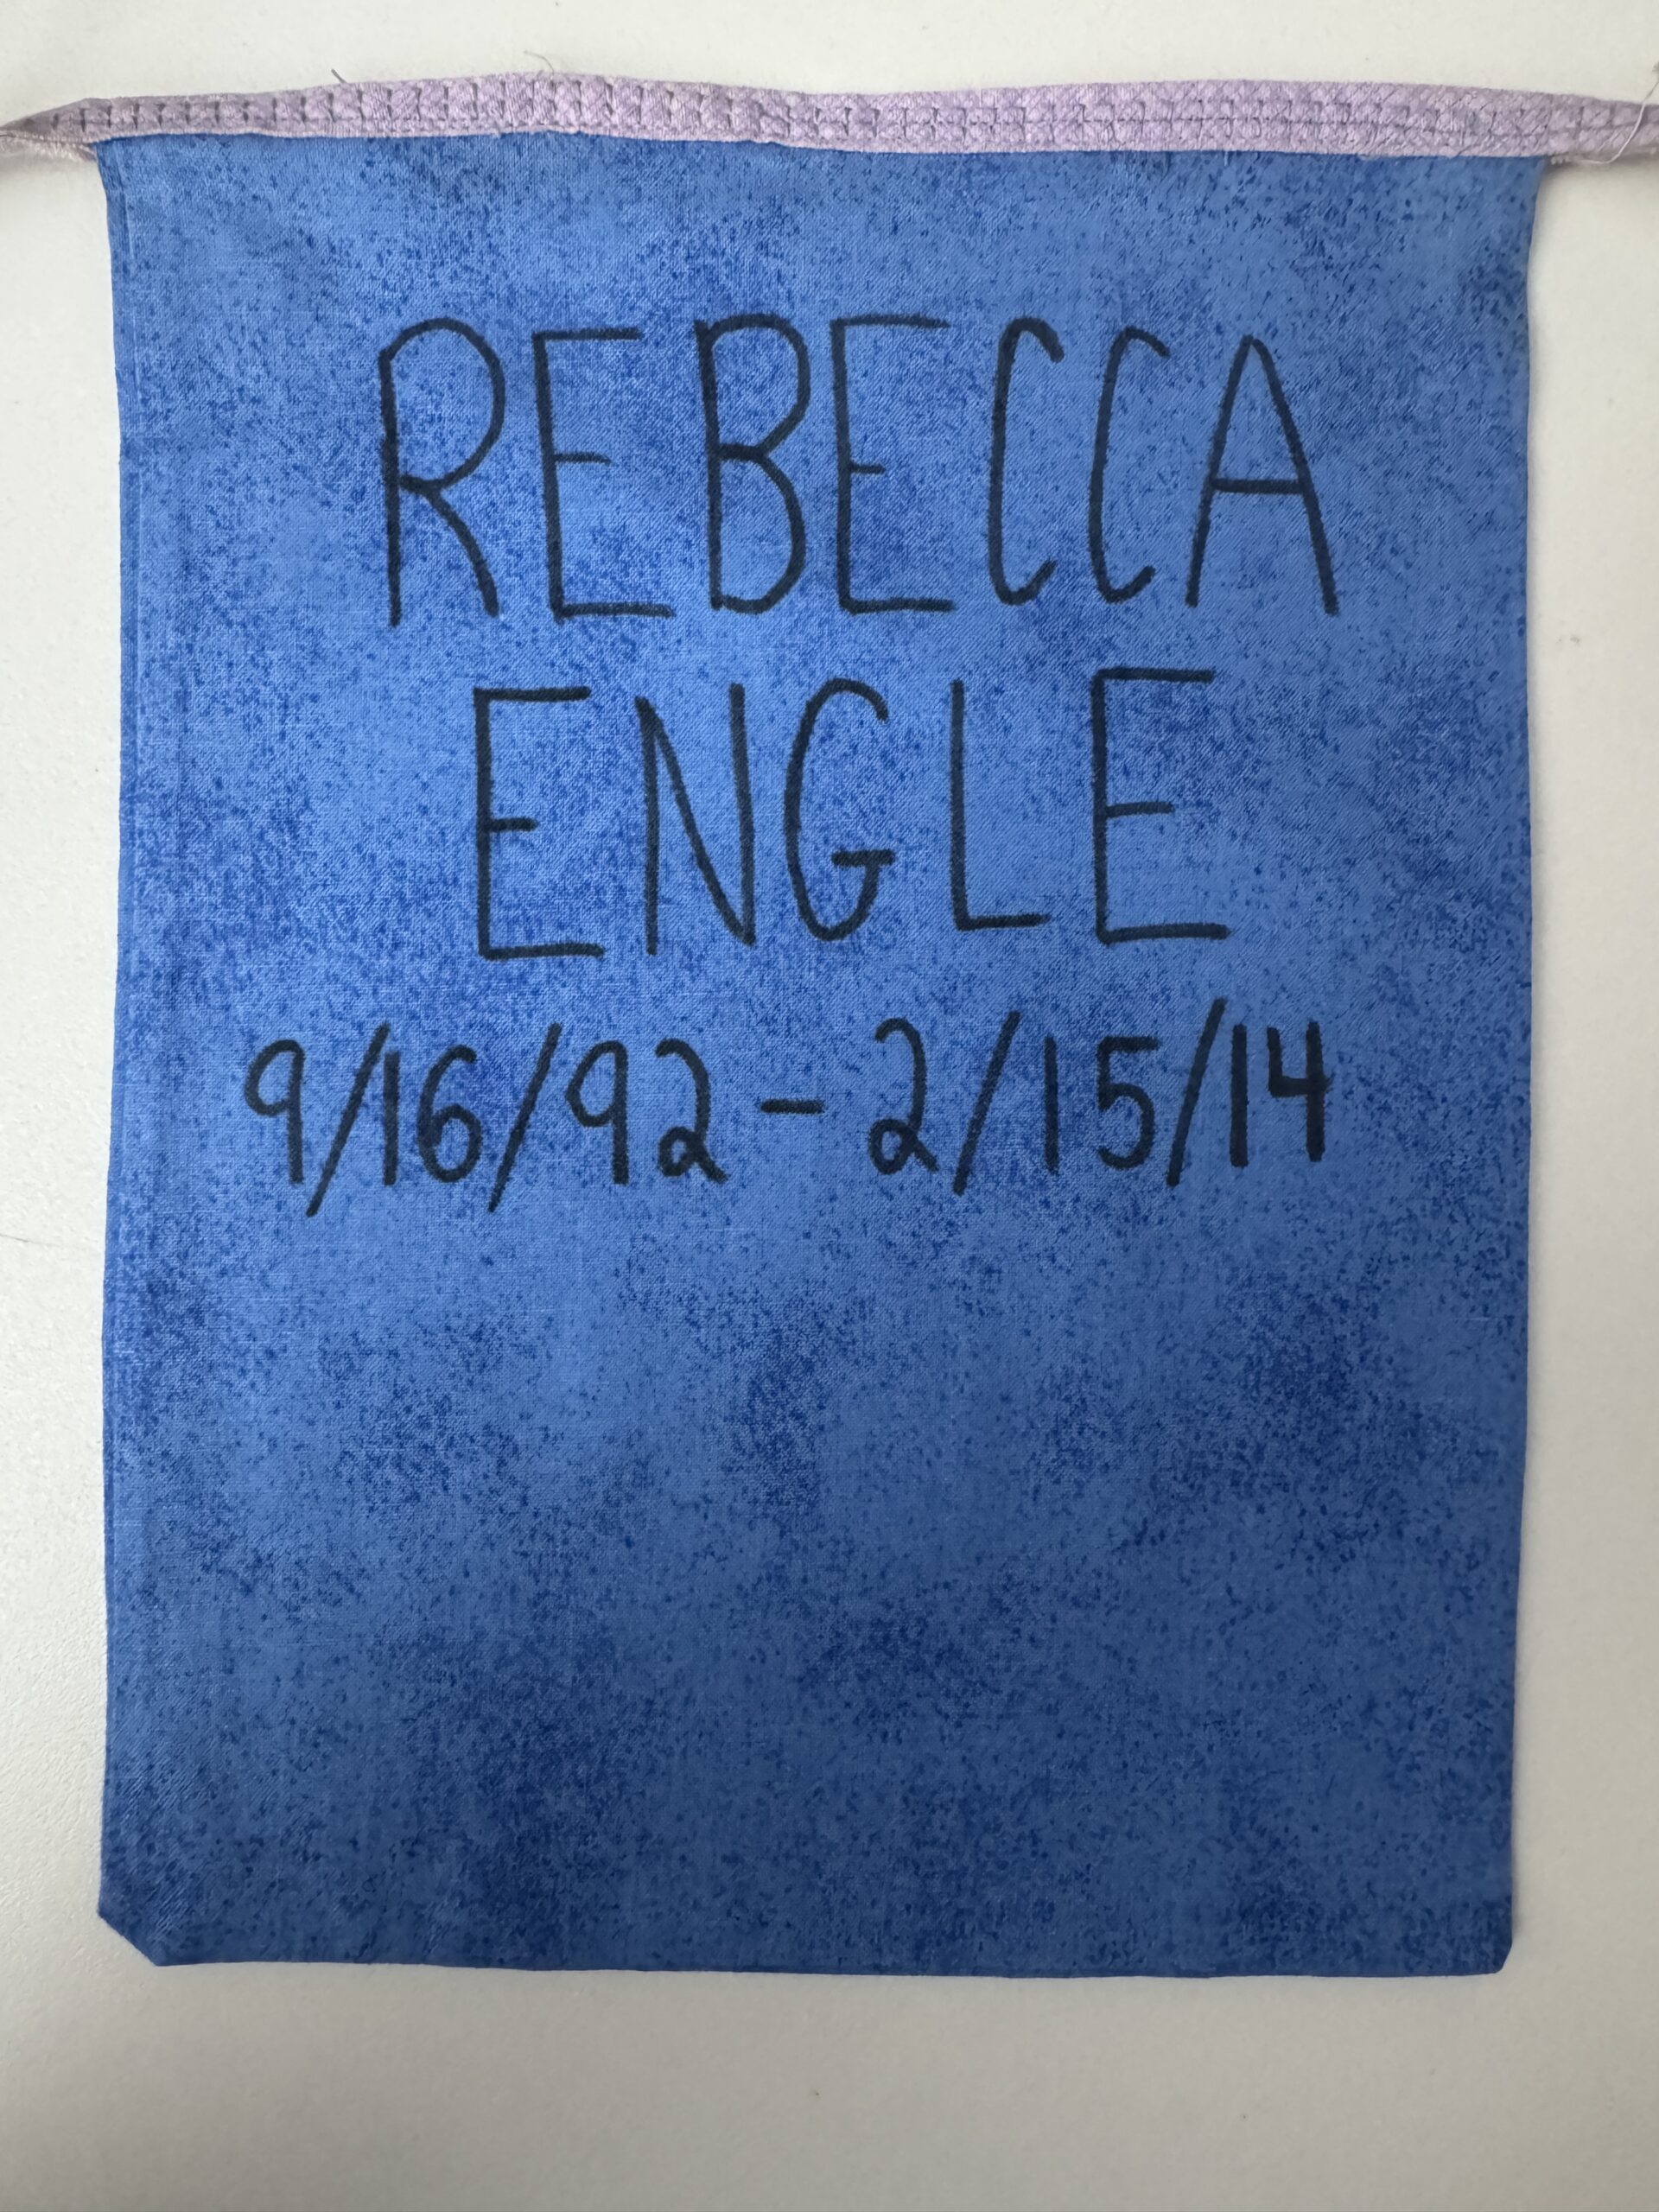 REBECCA
ENGLE
9/16/92 - 2/15/14